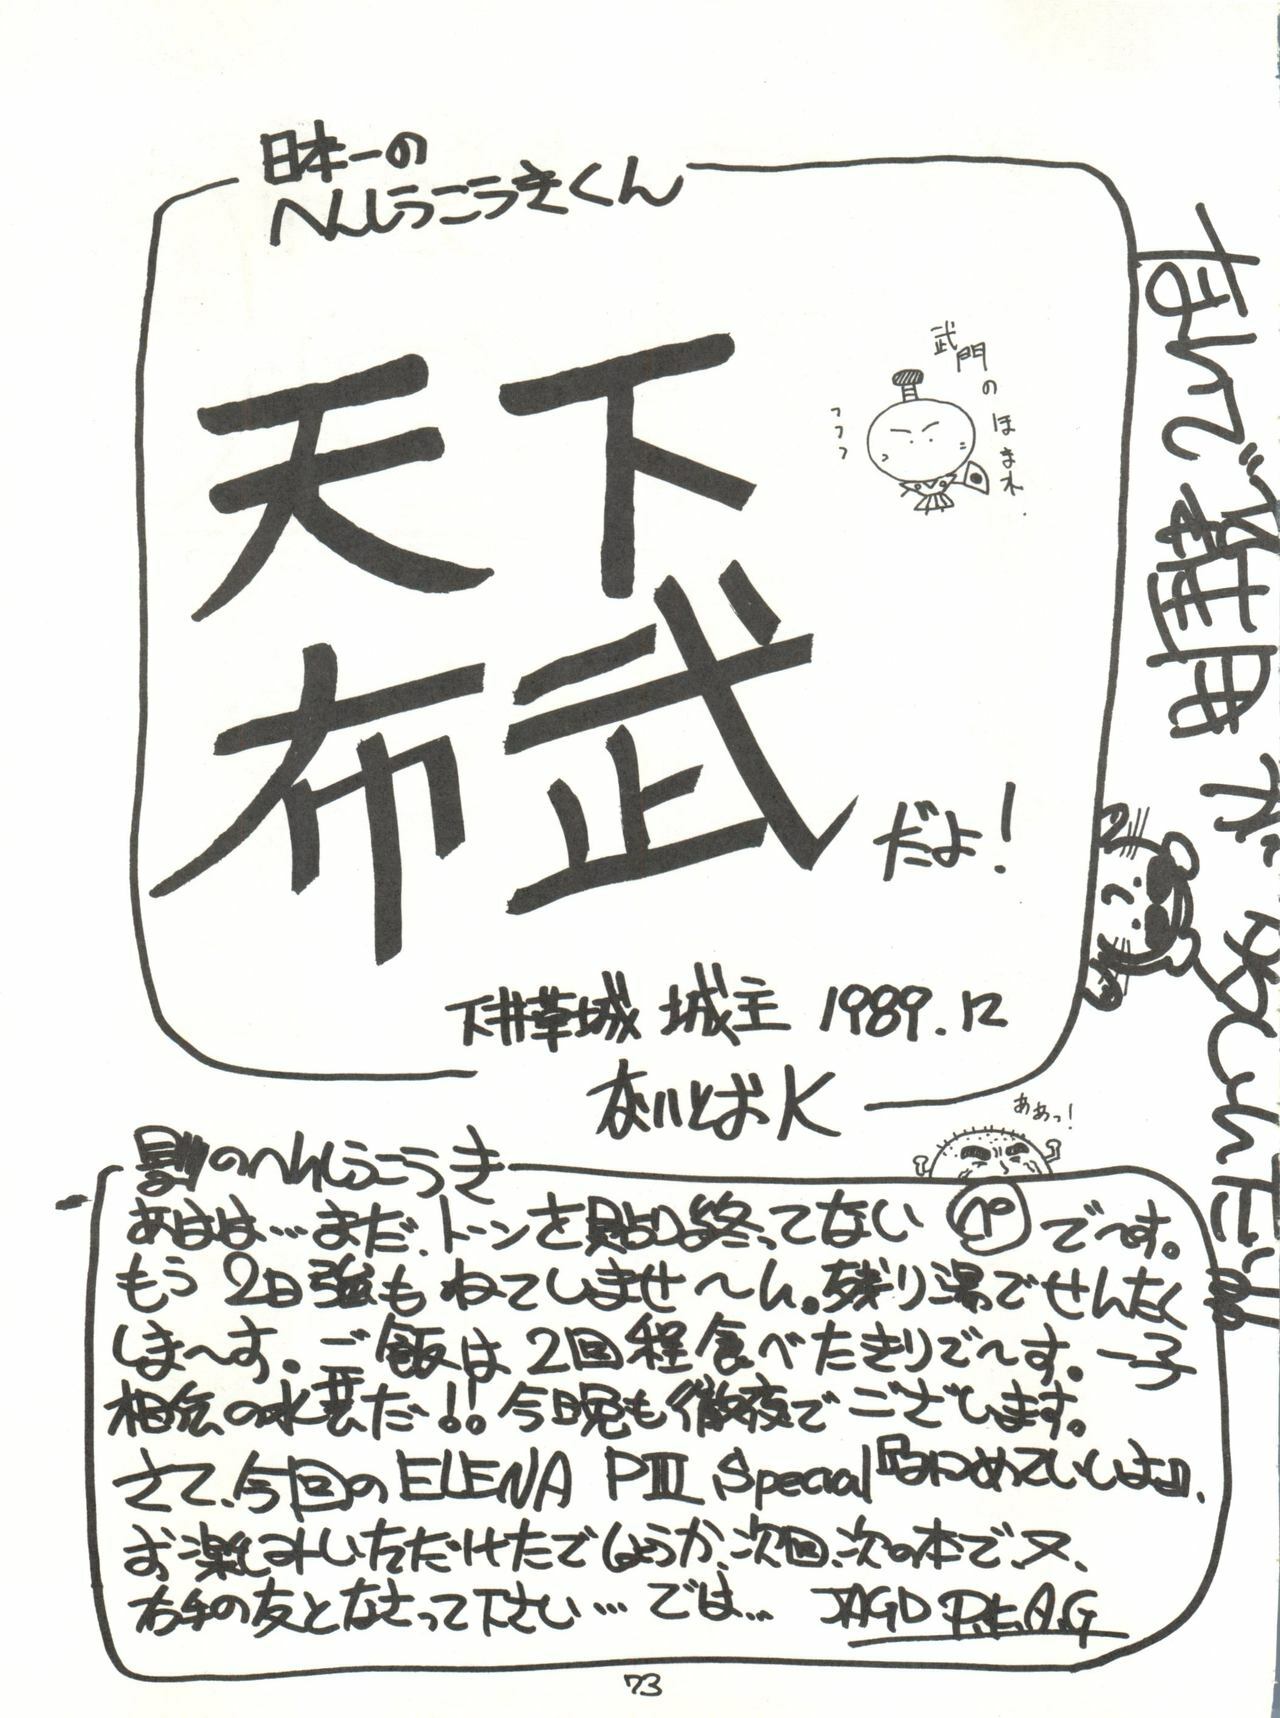 日本一の
へんしうこうきくん
天下
布武
だよ!
武門のほまれ
フフフ
下井草城 城主 1989.12
ないとおK
なんで雑用が
ああっ!
別のへんしうこうき
あはは…まだ、トーンを貼り終ってない ㋬ で〜す。
もう2日強もねてしませ〜ん。残り湯でせんたく
しま〜す。ご飯は2回程食べたきりで〜す。一子
相伝の水芸だ!!今日晩も徹夜でございます。
さて、今回のELENA PⅢ Special
お楽しみいただけたでしょうか、次回、次の本で、又、
右手の友となさって下さい… では… JAGD P.E.A.G
73